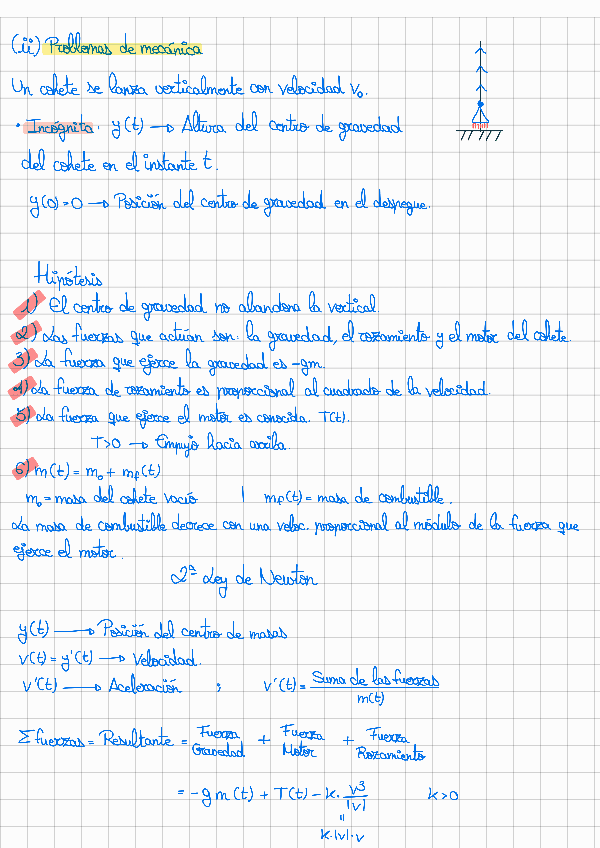 (ii) Problemas de mecánica
Un cohete se lanza verticalmente con velocidad v₀.
• Incógnita: y(t) → Altura del centro de gravedad
del cohete en el instante t.
y(0)=0 → Posición del centro de gravedad en el despegue.
Hipótesis
1) El centro de gravedad no abandona la vertical.
2) Las fuerzas que actúan son: la gravedad, el rozamiento y el motor del cohete.
3) La fuerza que ejerce la gravedad es -gm.
4) La fuerza de rozamiento es proporcional al cuadrado de la velocidad.
5) La fuerza que ejerce el motor es conocida. T(t).
T>0 → Empuje hacia arriba.
6) m(t) = m₀ + m_f(t)
m₀ = masa del cohete vacío | m_f(t) = masa de combustible.
La masa de combustible decrece con una veloc. proporcional al módulo de la fuerza que
ejerce el motor.
2ª Ley de Newton
y(t) → Posición del centro de masas
v(t) = y'(t) → Velocidad.
v'(t) → Aceleración ; v'(t) = Suma de las fuerzas / m(t)
Σ fuerzas = Resultante = Fuerza Gravedad + Fuerza Motor + Fuerza Rozamiento
= -g m(t) + T(t) - k · v³/|v| k>0
=
k·|v|·v